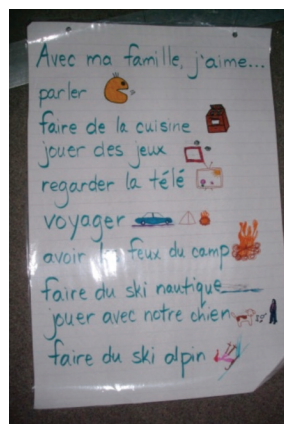 Avec ma famille, j'aime...
parler
faire de la cuisine
jouer des jeux
regarder la télé
voyager
avoir feux du camp
faire du ski nautique
jouer avec notre chien
faire du ski alpin